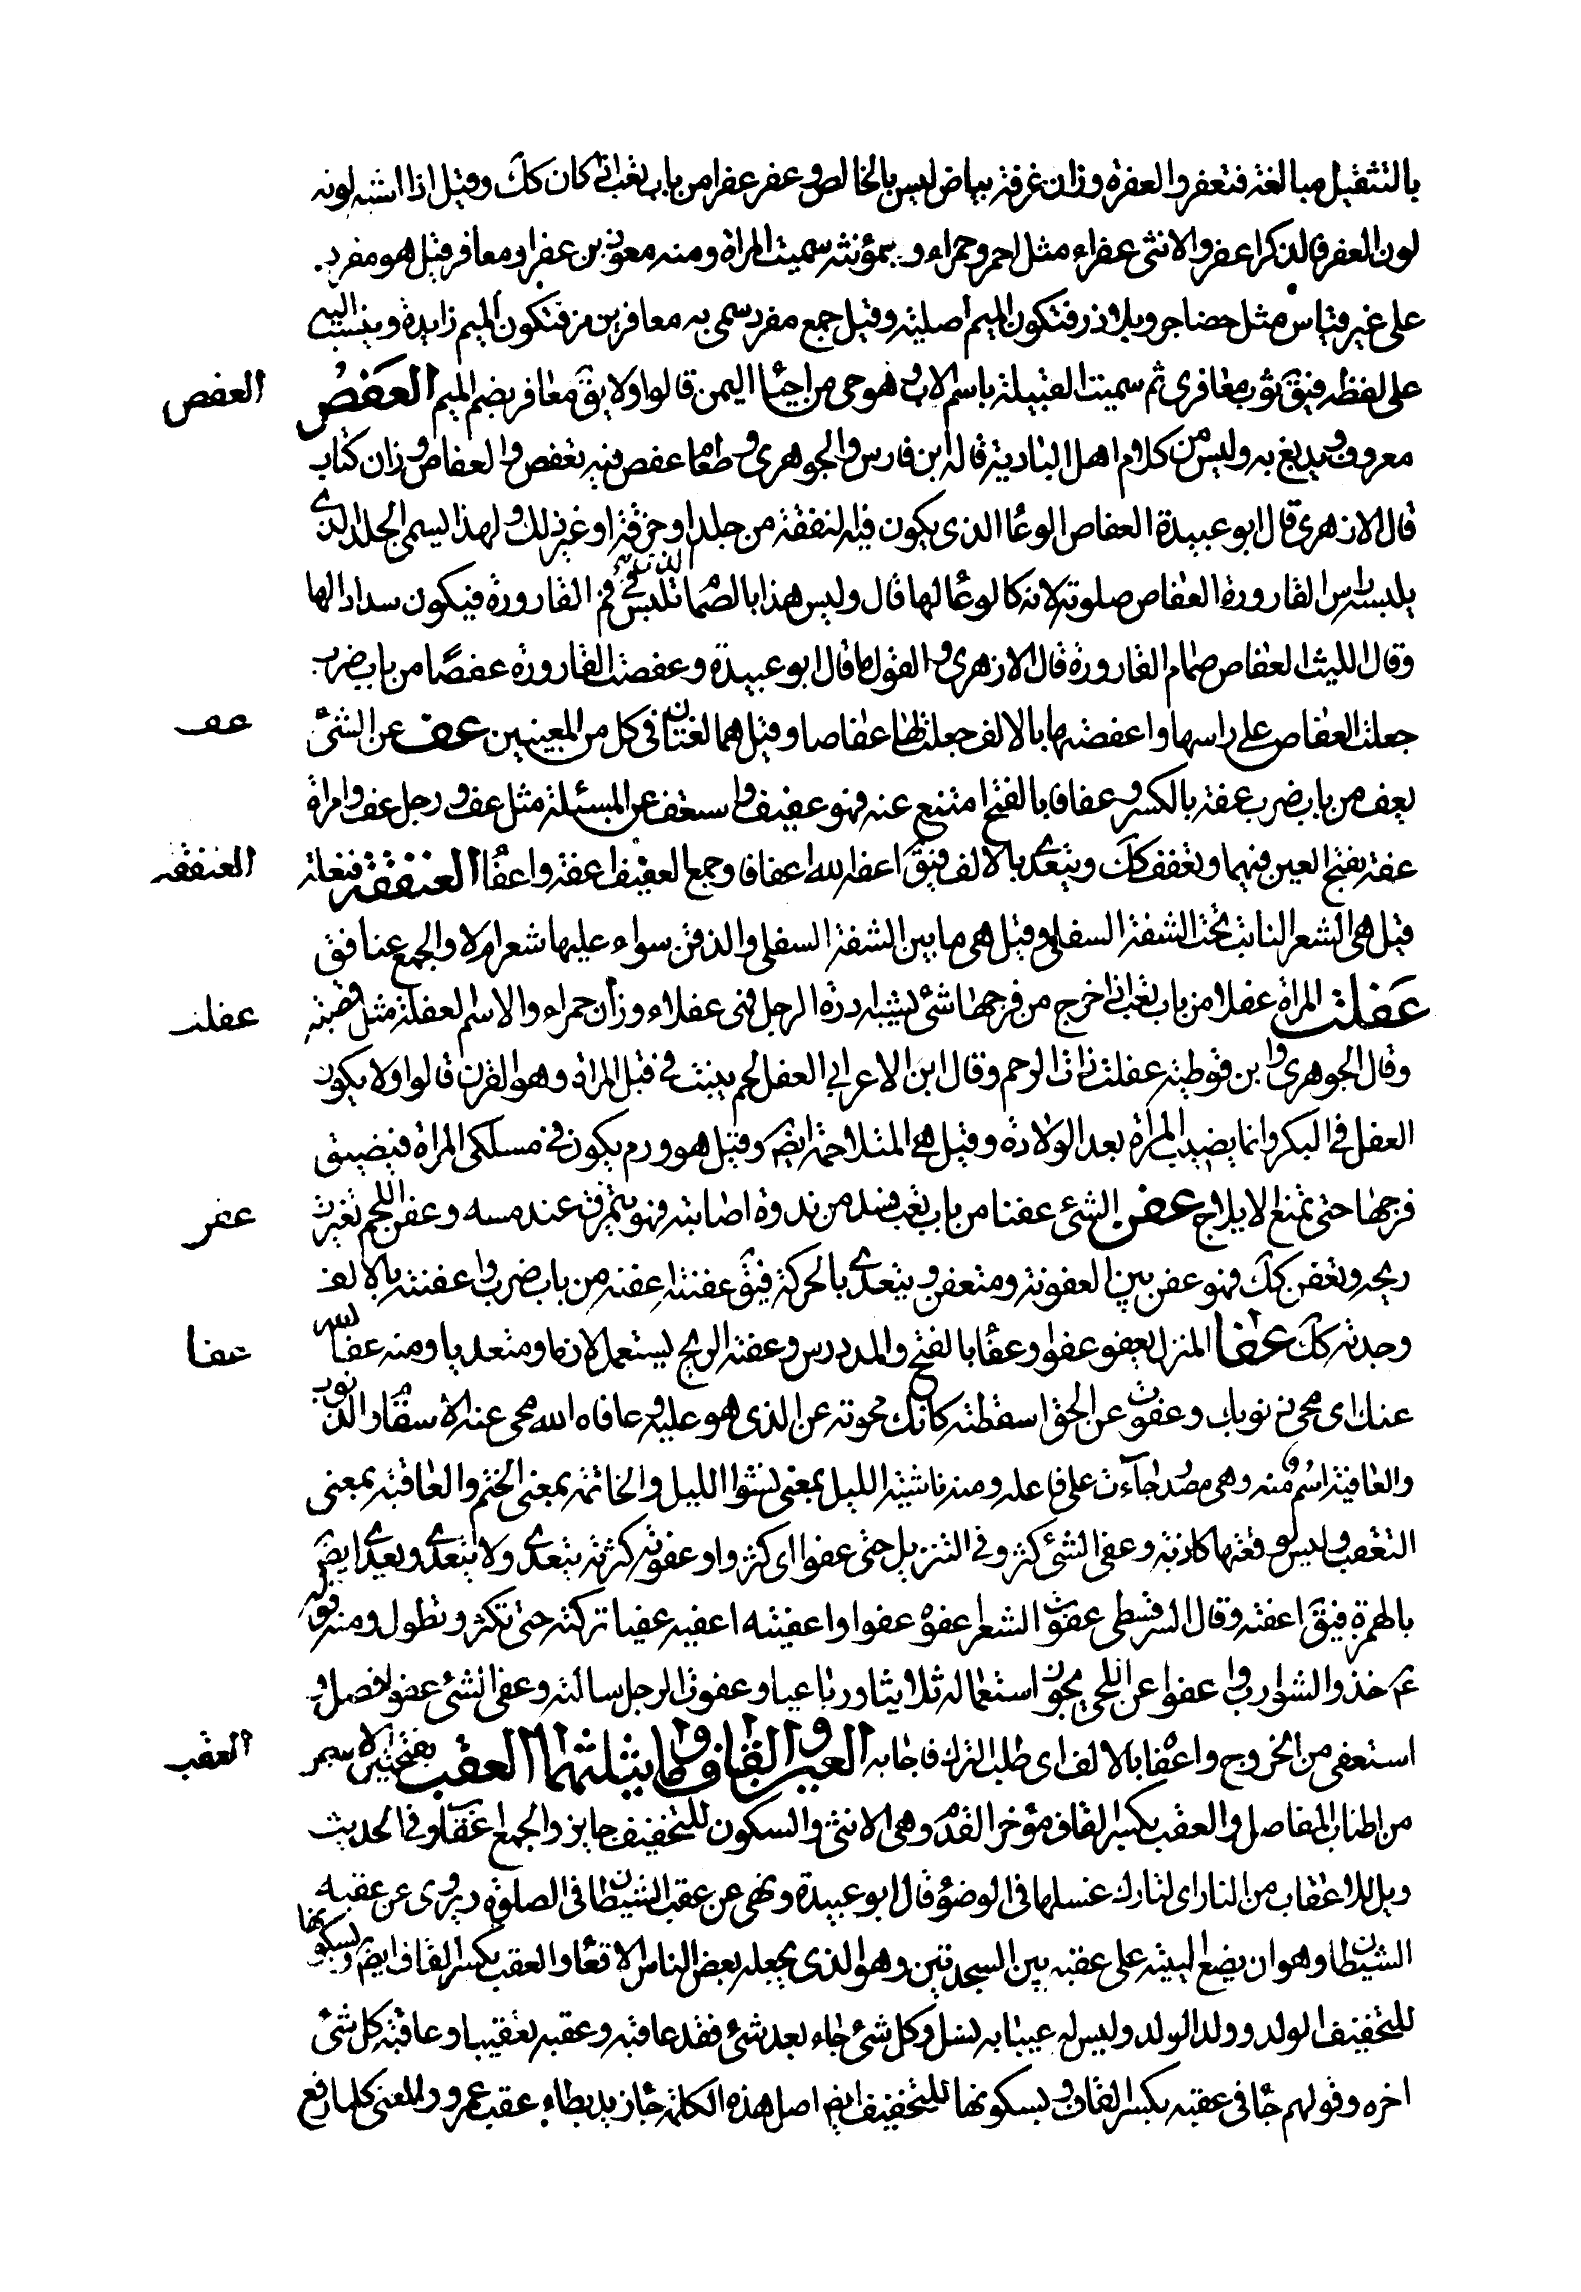 بالتثقيل مبالغة فتعفر والعفرة وزان غرفة بياض ليس بالخالص وعفر عفرا من باب تعب اذا كان كك وقيل اذا اشبه لونه
لون العفر فالذكر اعفر والانثى عفراء مثل احمر وحمراء وبمؤنثه سميت المراة ومنه معوذ بن عفراء ومعافر قيل هو مفرد
على غير قياس مثل حضاجر وبلاذر فتكون الميم اصلية وقيل جمع مفرد سمى به معافر بن مر فتكون الميم زايدة وينسب اليه
على لفظه فيق ثوب معافرى ثم سميت القبيلة باسم الاب فهو حى من احياء اليمن قالوا ولا يق معافر بضم الميم العفص
العفص
معروف ويدبغ به وليس من كلام اهل البادية قاله ابن فارس والجوهرى وطعام عفص فيه تعفص والعفاص وزان كتاب
قال الازهرى قال ابو عبيدة العفاص الوعاء الذى يكون فيه النفقة من جلد او خرقة او غير ذلك ولهذا يسمى الجلد الذى
يلبسه راس القارورة العفاص صلوته لانه كالوعاء لها قال وليس هذا بالصمام الذى يلبس فى فم القارورة فيكون سدادا لها
وقال الليث العفاص صمام القارورة قال الازهرى والقول ما قال ابو عبيدة وعفصت القارورة عفصًا من باب ضرب
جعلت العفاص على راسها واعفصتها بالالف جعلت لها عفاصا وقيل هما لغتان فى كل من المعنيين عف عن الشئ
عف
يعف من باب ضرب عفة بالكسر وعفافا بالفتح امتنع عنه فهو عفيف واستعف عن المسئلة مثل عف ورجل عف وامراة
عفة بفتح العين فيهما وتعفف كك ويتعدى بالالف فيق اعفه الله اعفافا وجمع العفيف اعفة واعفاء العنفقة فنعلة
العنفقه
قيل هى الشعر النابت تحت الشفة السفلى وقيل هى ما بين الشفة السفلى والذقن سواء عليها شعر ام لا والجمع عنافق
عفلت المراة عفلا من باب تعب اذا خرج من فرجها شئ يشبه ادرة الرجل فهى عفلاء وزان حمراء والاسم العفلة مثل قصبة
عفلت
وقال الجوهرى وابن قوطية عفلت ذات الرحم وقال ابن الاعرابى العفل لحم ينبت فى قبل المراة وهو القرن قالوا ولا يكون
العفل فى البكر وانما يصيب المراة بعد الولادة وقيل هى المتلاحمة ايضا وقيل هو ورم يكون فى مسلكى المراة فيضيق
فرجها حتى تمنع الايلاج عفن الشئ عفنا من باب تعب فسد من ندوة اصابته فهو يتمزق عند مسه وعفن اللحم تغيرت
عفن
ريحه وتعفن كك فهو عفن بين العفونة ومتعفن ويتعدى بالحركة فيق عفنته اعفنه من باب ضرب واعفنته بالالف
وجدته كك عفا المنزل يعفو عفوا وعفاء بالفتح والمد درس وعفته الريح يستعمل لازما ومتعديا ومنه عفا الله
عفا
عنك اى محى ذنوبك وعفوت عن الحق اسقطته كانك محوته عن الذى هو عليه وعافاه الله محى عنه الاسقام والذنوب
والعافية اسم منه وهى مصدر جاءت على فاعلة ومنه ناشئة الليل بمعنى نشوا الليل والخاتمة بمعنى الختم والعاقبة بمعنى
التعقب وليس لوقعتها كاذبة وعفى الشئ كثر وفى التنزيل حتى عفوا اى كثروا وعفوته كثرته يتعدى ولا يتعدى ويعدى ايض
بالهمزة فيق اعفته وقال السرقسطى عفوت الشعر اعفوه عفوا واعفيته اعفيه عفيا تركته حتى تكثر وتطول ومنه قوله
عم خذوا الشوارب واعفوا عن اللحى يجوز استعماله ثلاثيا ورباعيا وعفوت الرجل سالته وعفى الشئ عفوا فضل و
استعفى من الخروج واعفا بالالف اى طلب الترك فاجابه العين والقاف وما يثلثهما العقب بفتحتين الاسمر
العقب
من اطناب المفاصل والعقب بكسر القاف مؤخر القدم وهى الانثى والسكون للتخفيف جايز والجمع اعقاب وفى الحديث
ويل للاعقاب من النار اى لتارك غسلها فى الوضوء قال ابو عبيدة ونهى عن عقب الشيطان فى الصلوة ويروى عن عقبه
الشيطان وهو ان يضع اليتيه على عقبه بين السجدتين وهو الذى يجعله بعض الناس الاقعاء والعقب بكسر القاف ايض وبسكونها
للتخفيف الولد وولد الولد وليس له عيبا به نسل وكل شئ جاء بعد شئ فقد عاقبه وعقبه تعقيبا وعاقبة كل شئ
اخره وقولهم جاء فى عقبه بكسر القاف وبسكونها للتخفيف ايض اصل هذه الكلمة جاء زيد يطاء عقب عمرو والمعنى كلما رفع